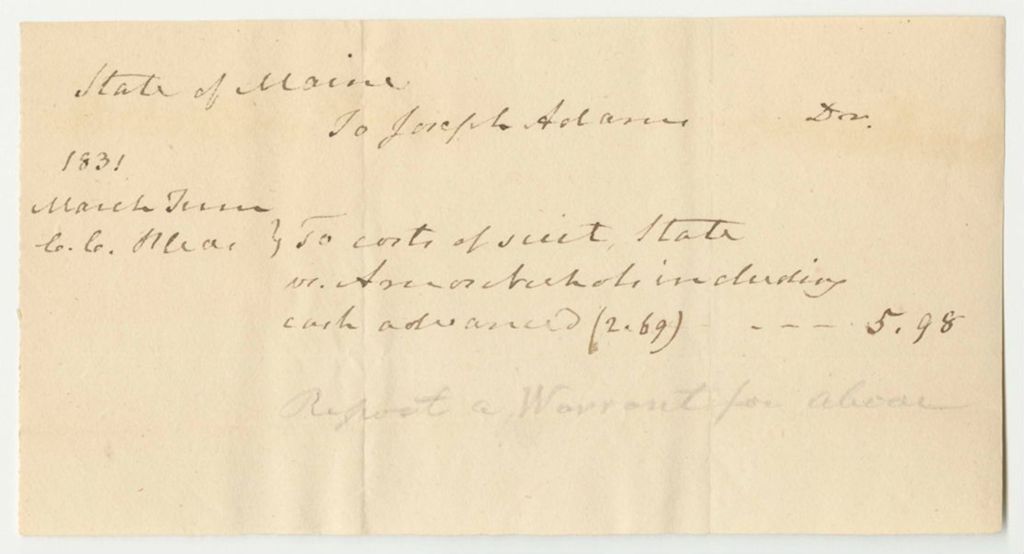 State of Maine
To Joseph Adams Dr.
1831
March Term
C. C. Pleas } To costs of suit, State
vs. Amos Nichols including
cash advanced (2.69) - - - - 5.98
Report a Warrant for above